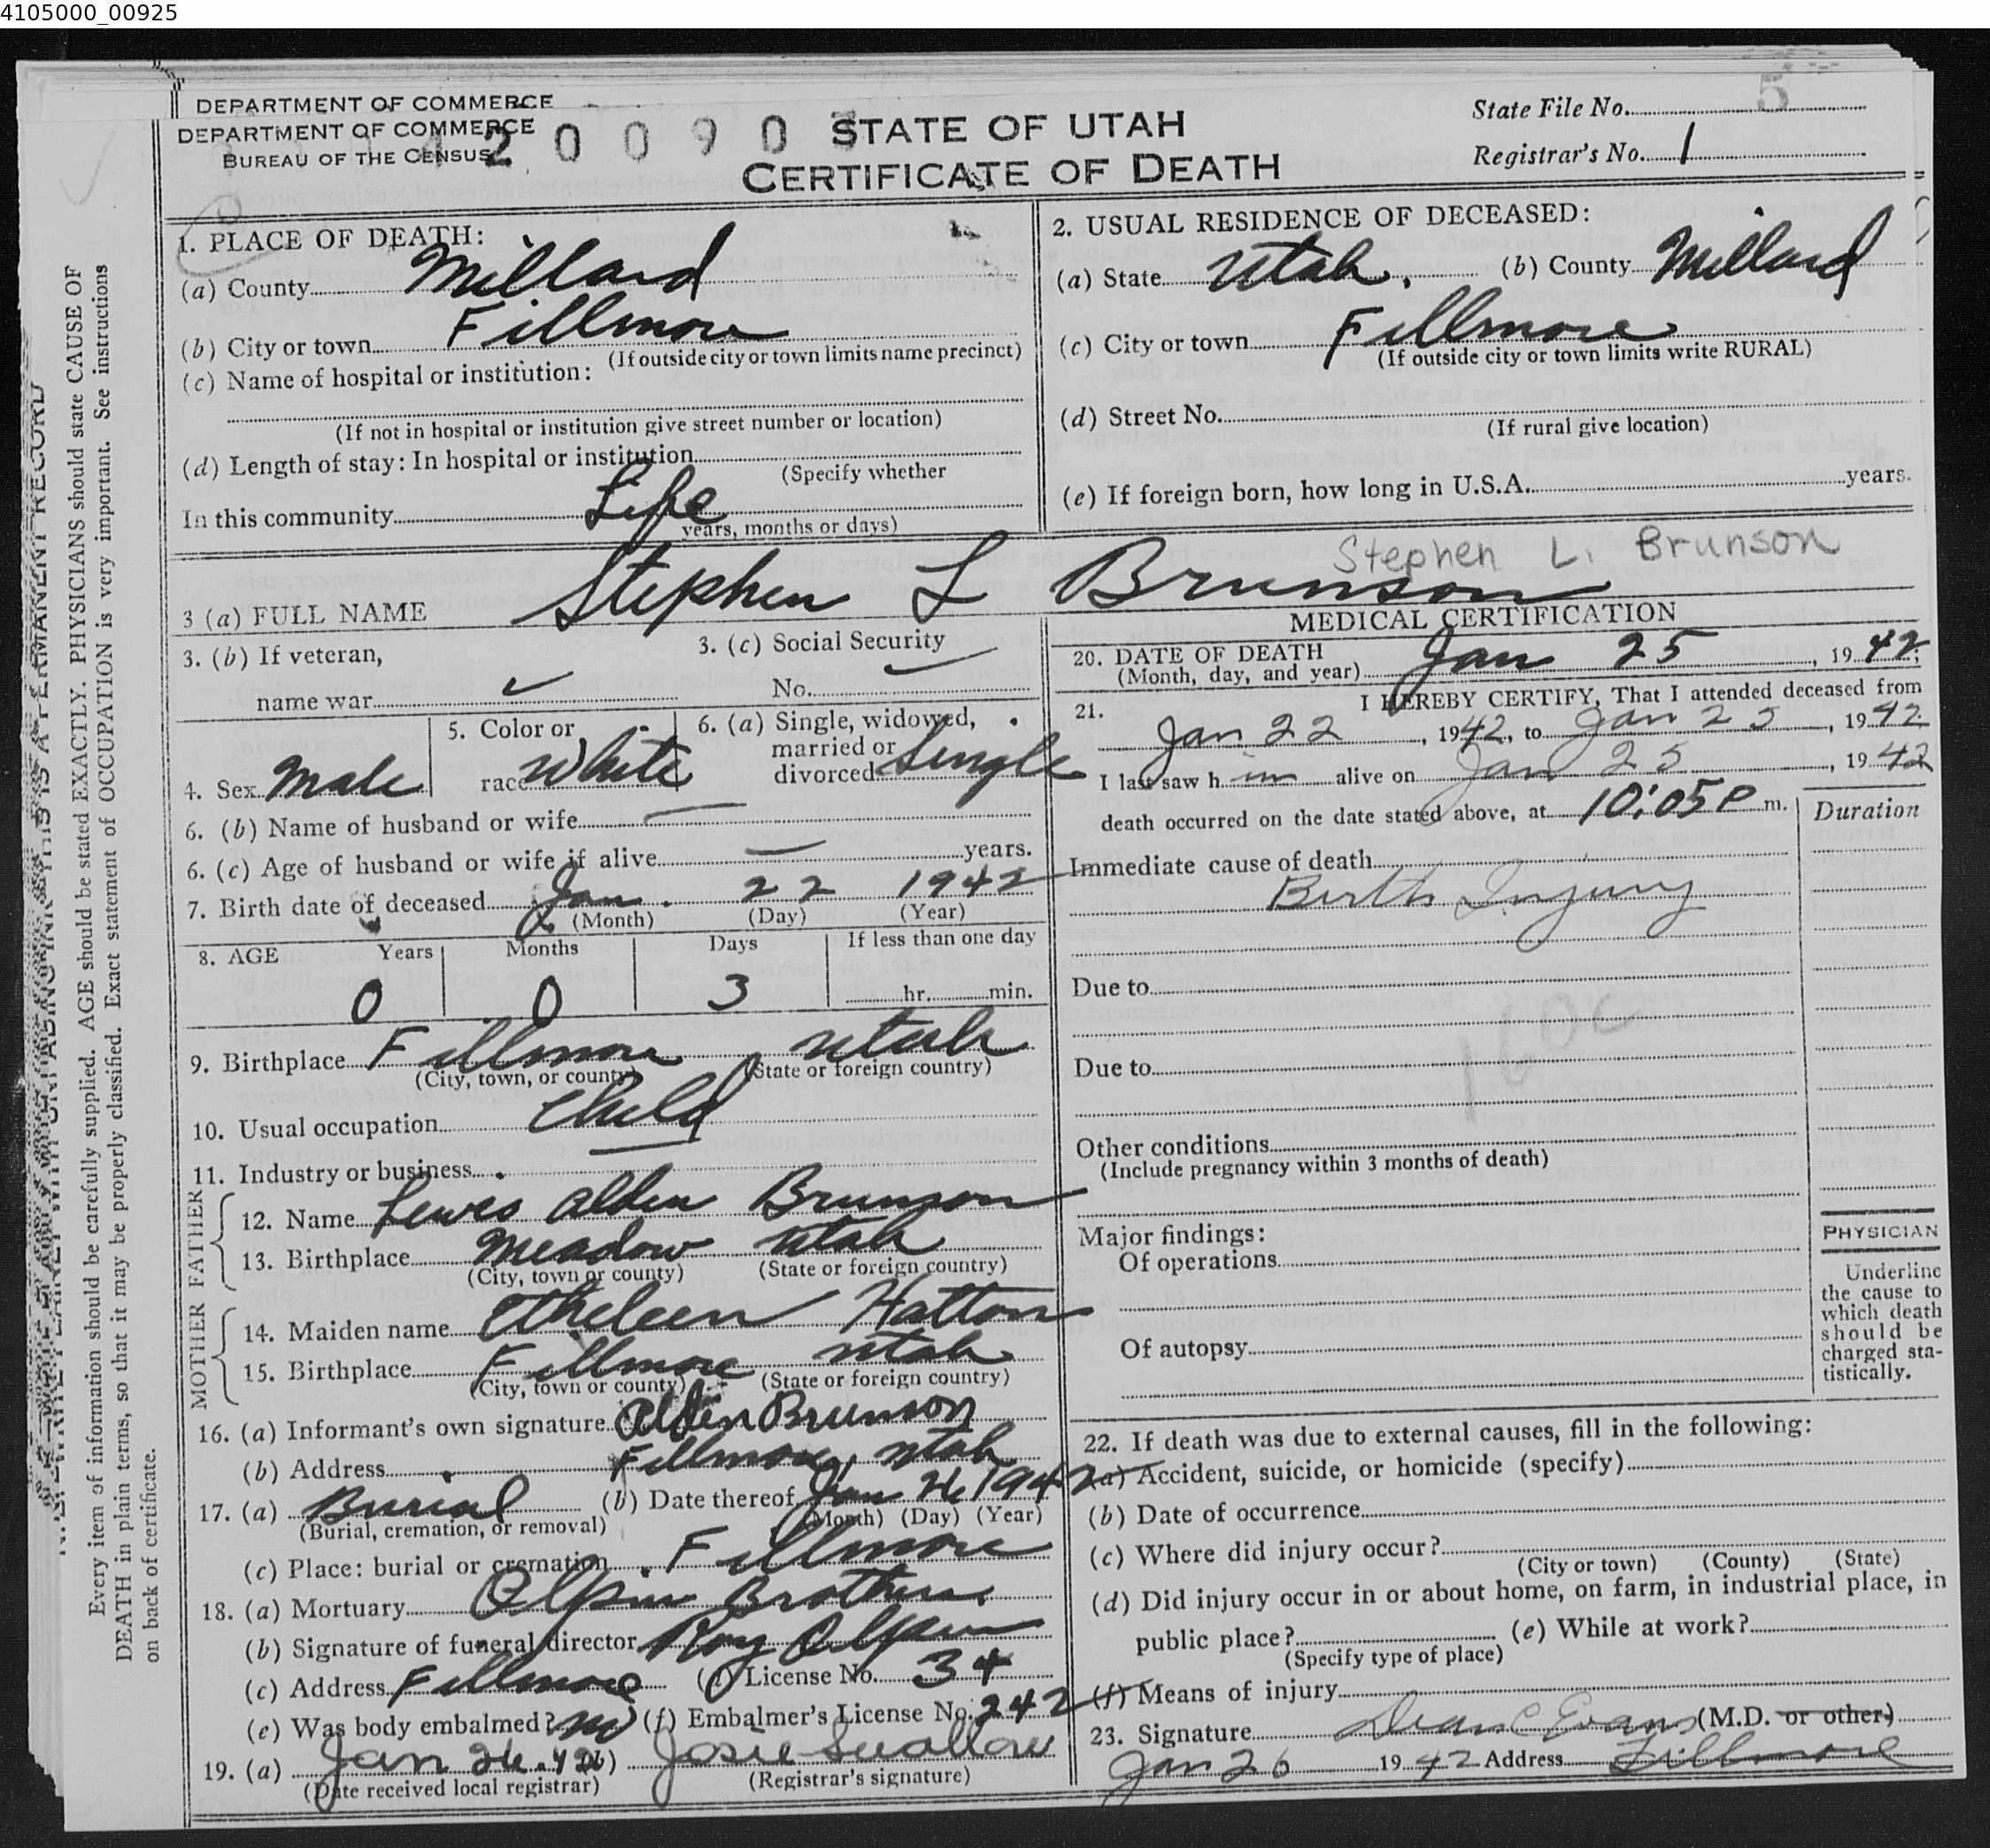 4105000_00925
DEPARTMENT OF COMMERCE
DEPARTMENT OF COMMERCE
BUREAU OF THE CENSUS
2 0 0 9 0
STATE OF UTAH
CERTIFICATE OF DEATH
State File No. 5
Registrar's No. 1
1. PLACE OF DEATH:
(a) County Millard
(b) City or town Fillmore
(If outside city or town limits name precinct)
(c) Name of hospital or institution:
(If not in hospital or institution give street number or location)
(d) Length of stay: In hospital or institution
(Specify whether
In this community Life
years, months or days)
2. USUAL RESIDENCE OF DECEASED:
(a) State Utah. (b) County Millard
(c) City or town Fillmore
(If outside city or town limits write RURAL)
(d) Street No.
(If rural give location)
(e) If foreign born, how long in U.S.A. years.
Stephen L. Brunson
3 (a) FULL NAME Stephen L Brunson
3. (b) If veteran,
name war
3. (c) Social Security
No.
4. Sex Male
5. Color or
race White
6. (a) Single, widowed,
married or
divorced Single
6. (b) Name of husband or wife
6. (c) Age of husband or wife if alive years.
7. Birth date of deceased Jan. 22 1942
(Month) (Day) (Year)
8. AGE Years Months Days If less than one day
0 0 3 hr. min.
9. Birthplace Fillmore Utah
(City, town, or county) (State or foreign country)
10. Usual occupation Child
11. Industry or business
FATHER
12. Name Lewes Alden Brunson
13. Birthplace Meadow Utah
(City, town or county) (State or foreign country)
MOTHER
14. Maiden name Etheleen Hatton
15. Birthplace Fillmore Utah
(City, town or county) (State or foreign country)
16. (a) Informant's own signature Alden Brunson
(b) Address Fillmore, Utah
17. (a) Burial (b) Date thereof Jan 26 1942
(Burial, cremation, or removal) (Month) (Day) (Year)
(c) Place: burial or cremation Fillmore
18. (a) Mortuary Olpin Brothers
(b) Signature of funeral director Roy Olpin
(c) Address Fillmore License No. 34
(e) Was body embalmed? no (f) Embalmer's License No. 242
19. (a) Jan 26.42 (b) Josie Swallow
(Date received local registrar) (Registrar's signature)
MEDICAL CERTIFICATION
20. DATE OF DEATH
(Month, day, and year) Jan 25, 1942
21. I HEREBY CERTIFY, That I attended deceased from
Jan 22, 1942, to Jan 25, 1942
I last saw him alive on Jan 25, 1942
death occurred on the date stated above, at 10:05 P m.
Duration
Immediate cause of death
Birth Injury
Due to
160c
Due to
Other conditions
(Include pregnancy within 3 months of death)
Major findings:
Of operations
Of autopsy
PHYSICIAN
Underline
the cause to
which death
should be
charged sta-
tistically.
22. If death was due to external causes, fill in the following:
(a) Accident, suicide, or homicide (specify)
(b) Date of occurrence
(c) Where did injury occur?
(City or town) (County) (State)
(d) Did injury occur in or about home, on farm, in industrial place, in
public place? (e) While at work?
(Specify type of place)
(f) Means of injury
23. Signature Dean C Evans (M.D. or other)
Jan 26 1942 Address Fillmore
Every item of information should be carefully supplied. AGE should be stated EXACTLY. PHYSICIANS should state CAUSE OF
DEATH in plain terms, so that it may be properly classified. Exact statement of OCCUPATION is very important. See instructions
on back of certificate.